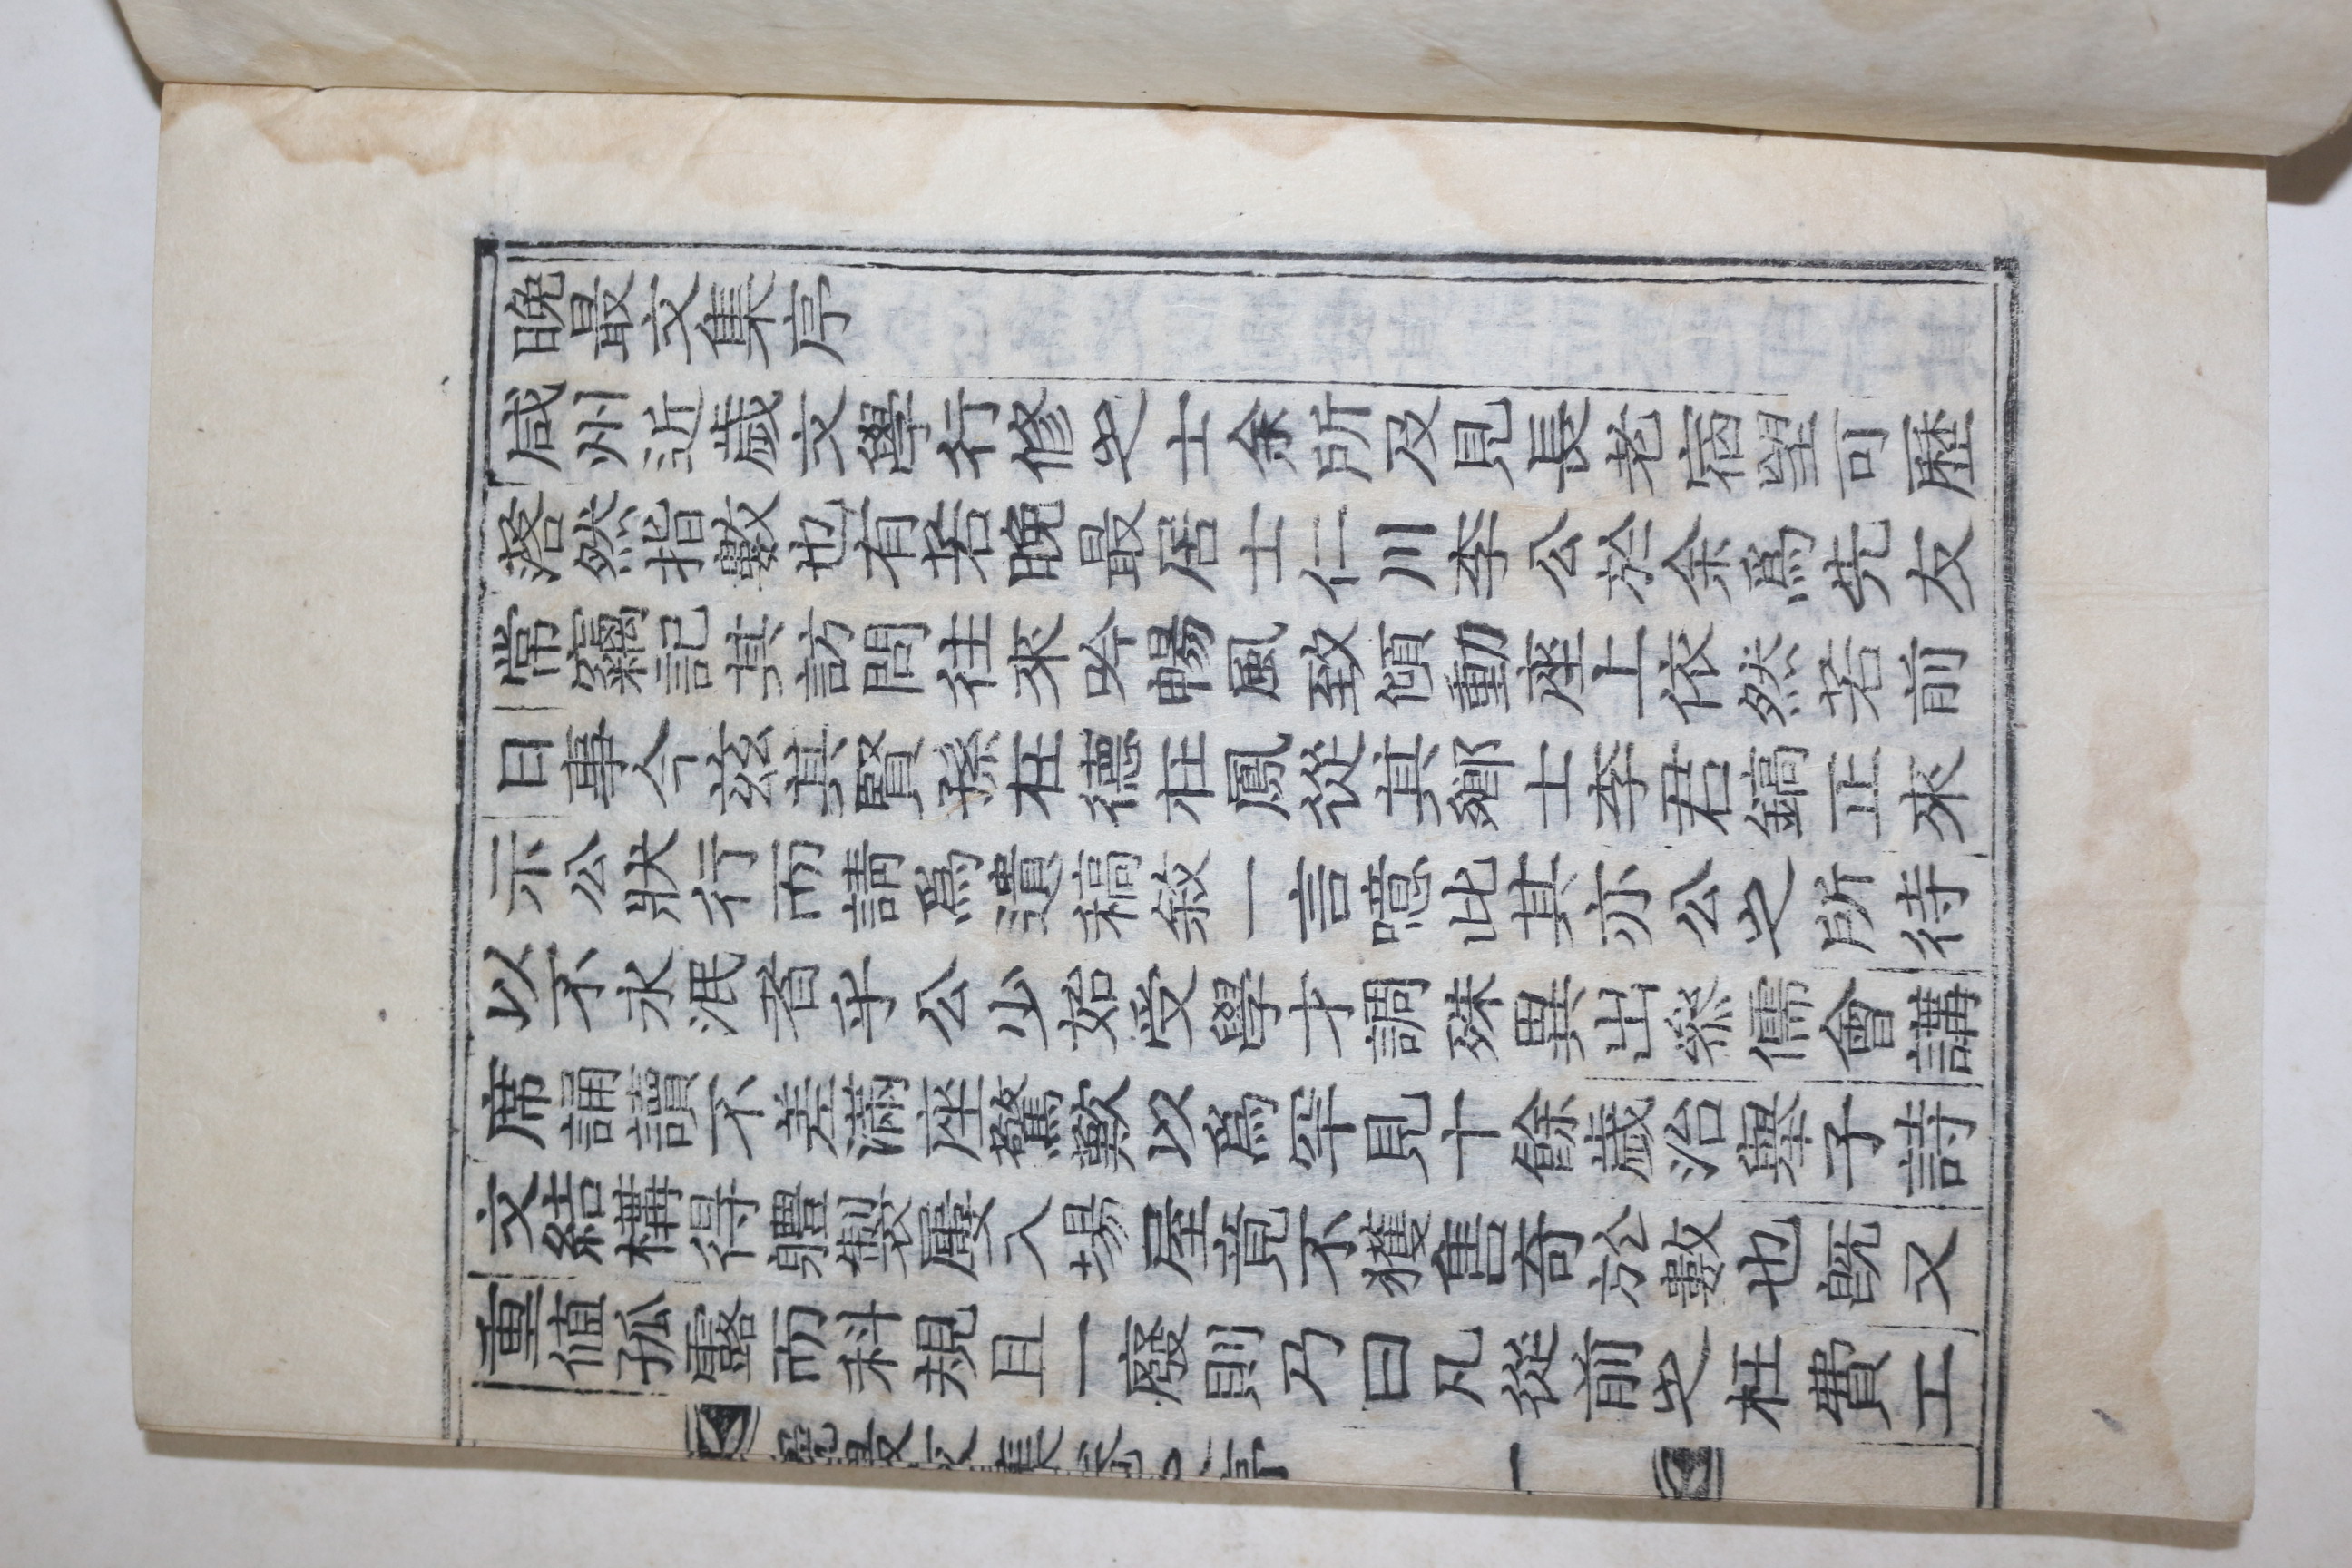 晩最文集序
咸州近歲文學行修之士余所及見長老宿望可歷
落然指數也有若晩最居士仁川李公於余爲先友
常竊記其訪問往來吟暢風致傾動座上依然若前
日事今玆其賢孫在德在鳳從其鄕士李君鎬正來
示公狀行而請爲遺稿敘一言噫此其亦公之所待
以不永泯者乎公少始受學才調殊異出叅儒會講
席誦讀不差滿座驚歎以爲罕見十餘歲治擧子詩
文結構得軆製屢入場屋竟不獲售奇於數也旣又
重値孤露而科規且一廢則乃曰凡從前之枉費工
晩最文集卷之序
一